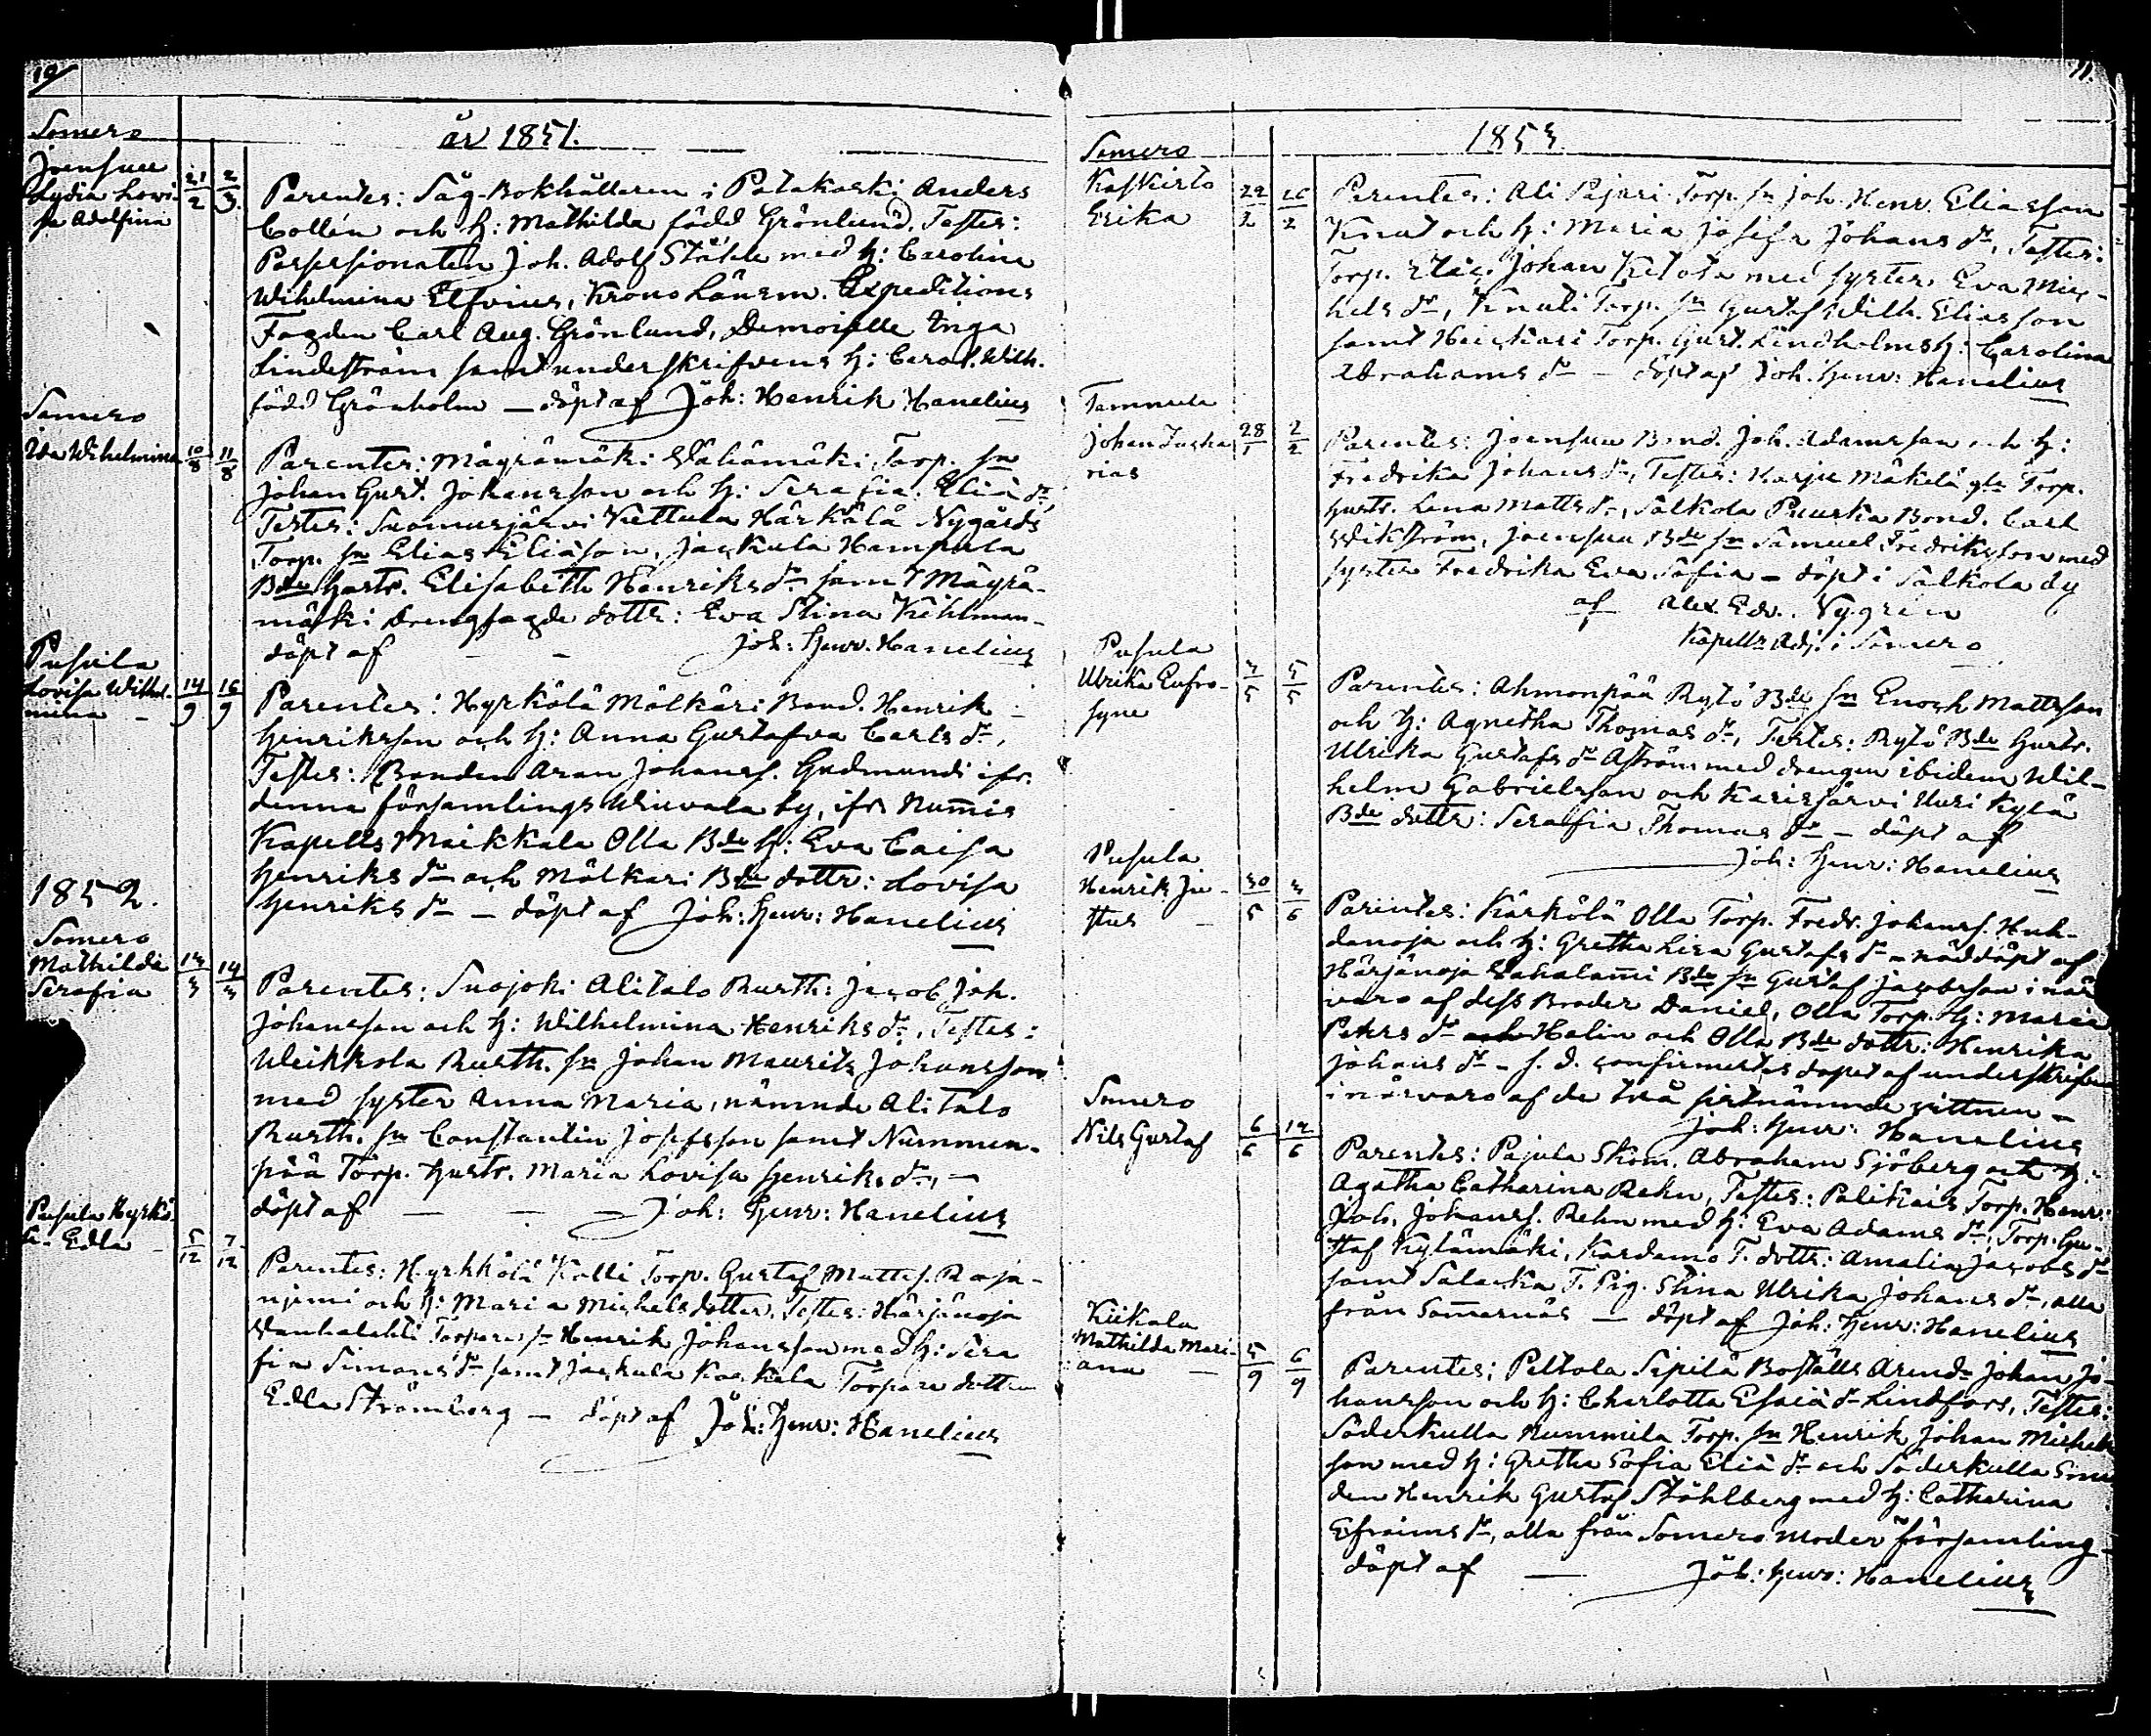 10
Somero
år 1851.
Joensuu
Lydia Lovi-
sa Adolfina
21/2 2/3
Parentes: Såg-Bokhållaren i Patakoski Anders
Collén och h: Mathilda född Grönlund. Testes:
Possessionaten Joh. Adolf Ståhle med h: Carolina
Wilhelmina Elfvius, Krono Länsm. Expeditions
Fogden Carl Aug. Grönlund, Demoiselle Inga
Lindeström samt underskrifvens h: Carol. Wilh.
född Grönholm — döpt af Joh: Henrik Hanelius
Somero
Ida Wilhelmina
10/8 11/8
Parentes: Mäyrämäki Wähämäki Torp. sn
Johan Gust. Johansson och h: Serafia Eliä dr
Testes: Suomusjärvi Kettula Härkälä Nygårds
Torp. sn Elias Eliäson, Jackula Hampula
Bde hustr. Elisabeth Henriks dr samt Mäyrä-
mäki Drengfogde dottr: Eva Stina Kihlman-
döpt af — — Joh: Henr. Hanelius
Pusula
Lovisa Wilhel-
mina —
14/9 16/9
Parentes: Hyrkölä Mölkäri Bond. Henrik
Henriksson och h: Anna Gustafva Carls dr,
Testes: Bonden Aran Johanss. Gudmundi ifr.
denna församlings Wiuvala by, ifr. Num̄is
Kapells Maikkala Olla Bde h: Eva Caisa
Henriks dr och Mölkäri Bde dottr: Lovisa
Henriks dr — döpt af Joh: Henr: Hanelius
1852.
Somero
Mathilda
Serafia
13/3 14/3
Parentes: Suojoki Alitalo Rusth: Jacob Joh.
Johansson och h: Wilhelmina Henriks dr, Testes:
Weikkola Rusth. sn Johan Maurits Johansson
med syster Anna Maria, nämnde Alitalo
Rusth. sn Constantin Josefsson samt Nummen-
pää Torp. hustr. Maria Lovisa Henriks dr, —
döpt af — — — Joh: Henr: Hanelius
Pusula Hyrkö-
lä. Edla —
5/12 7/12
Parentes: Hyrkkölä Kalli Torp. Gustaf Matts. Raja-
niemi och h: Maria Michelsdotter, Testes: Härjänoja
Wanhalahti Torpare sn Henrik Johansson med h: Sera
fia Simons dr samt Jackula Koskela Torpare dottren
Edla Strömberg — döpt af Joh: Henr: Hanelius
11.
Somero
1853
Kaskisto
Erika
22/2 26/2
Parentes: Ali Pajari Torp. sn Joh. Henr. Eliasson
Knut och h: Maria Josefa Johans dr, Testes:
Torp. Johan Ketola med syster Eva Mic-
hels dr, Knuti Torp. sn Gustaf Wilh. Eliasson
samt Heickari Torp. Gust. Lindholms h: Carolina
Abrahams dr — döpt af Joh. Henr: Hanelius
Tammula
Johan Zacha
rias
28/1 2/2
Parentes: Joensuu Bond. Joh. Adamsson och h:
Fredrika Johans dr, Testes: Harju Mäkelä gla Torp.
hustr. Lena Matts dr, Salkola Puurka Bond. Carl
Wikström, Joensuu Bde sn Samuel Fredriksson med
syster Fredrika Eva Safia — döpt i Salkola by
af Alex. Edv. Nygrén
Kapells Adj: i Somero
Pusula
Ulrika Eufro-
syne
3/5 5/5
Parentes: Ahmonpää Rytö Bde sn Enoch Mattsson
och h: Agnetha Thomas dr, Testes: Rytö Bde hustr.
Ulrika Gustafs dr Aström med drengen ibidem Wil-
helm Gabrielsson och Karisjärvi Uusi Kylä
Bde dottr: Serafia Thomas dr — döpt af
Joh: Henr: Hanelius
Pusula
Henrik Ju-
stus —
30/5 3/6
Parentes: Kärkölä Olla Torp. Fredr. Johanss. Huh-
danoja och h: Gretha Lisa Gustafs dr — nöddöpt af
Härjänoja Wahalam̄i Bde sn Gustaf Jacobsson i när
varo af dess Broder Daniel, Olla Torp. h: Maria
Peters dr och Helin och Olla Bde dottr: Henrika
Johans dr — s. d. confirmertes dopet af underskrifven
i närvaro af de två sistnämnde vittnen —
Joh: Henr: Hanelius
Somero
Nils Gustaf
6/6 12/6
Parentes: Pajula Skom. Abraham Sjöberg och h:
Agatha Catharina Rehn, Testes: Palikais Torp. Henr:
Joh. Johanss. Rehn med h: Eva Adams dr, Torp. Gu-
staf Kylämäki, Kardamo T. dottr: Amalia Jacobs dr
samt Salacka T. Pig. Stina Ulrika Johans dr, alla
från Som̄arnäs — döpt af Joh: Henr: Hanelius
Kiikala
Mathilda Mari-
ana —
5/9 6/9
Parentes: Peltola Sipilä Boställs Arend. Johan Jo-
hansson och h: Charlotta Esaiä dr Lindfors, Testes:
Söderkulla Nummila Torp. sn Henrik Johan Michels
son med h: Gretha Sofia Eliä dr och Söderkulla Sme
den Henrik Gustaf Ståhlberg med h: Catharina
Efraims dr, alla från Somero Moder församling —
döpt af — Joh: Henr: Hanelius